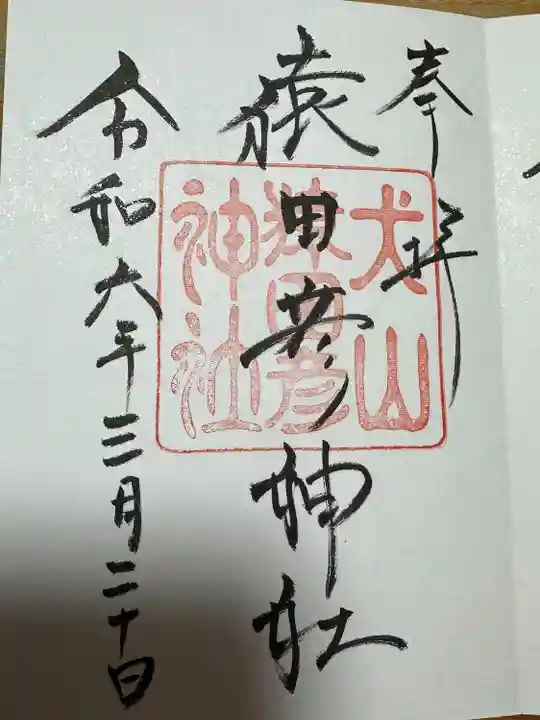 奉拝
犬山
猿田彦
神社
猿田彦神社
令和六年三月二十日